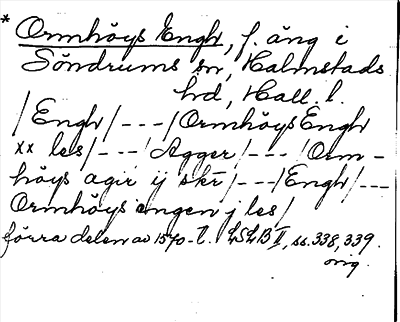 * Ormhöys Engh, f. äng i
Söndrums sn, Halmstads
hd, Hall. l.
/Engh/---/Ormhöys Engh
xx les/---/Agger/---/Orm-
höys agir ij skr/---/Engh/---
Ormhöys engen j les/
förra delen av 1570-t. LSLB II, ss. 338, 339.
orig.